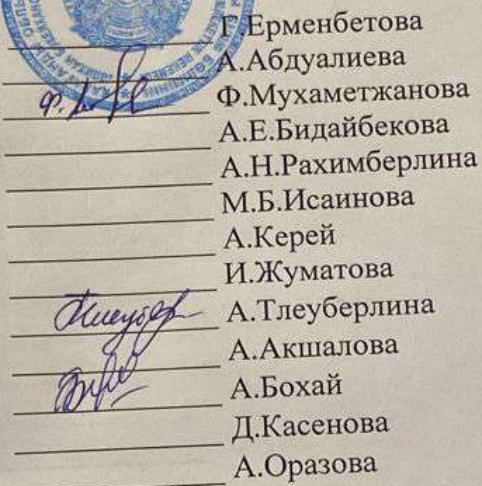 Г.Ерменбетова
А.Абдуалиева
Ф.Мухаметжанова
А.Е.Бидайбекова
А.Н.Рахимберлина
М.Б.Исаинова
А.Керей
И.Жуматова
А.Тлеуберлина
А.Акшалова
А.Бохай
Д.Касенова
А.Оразова